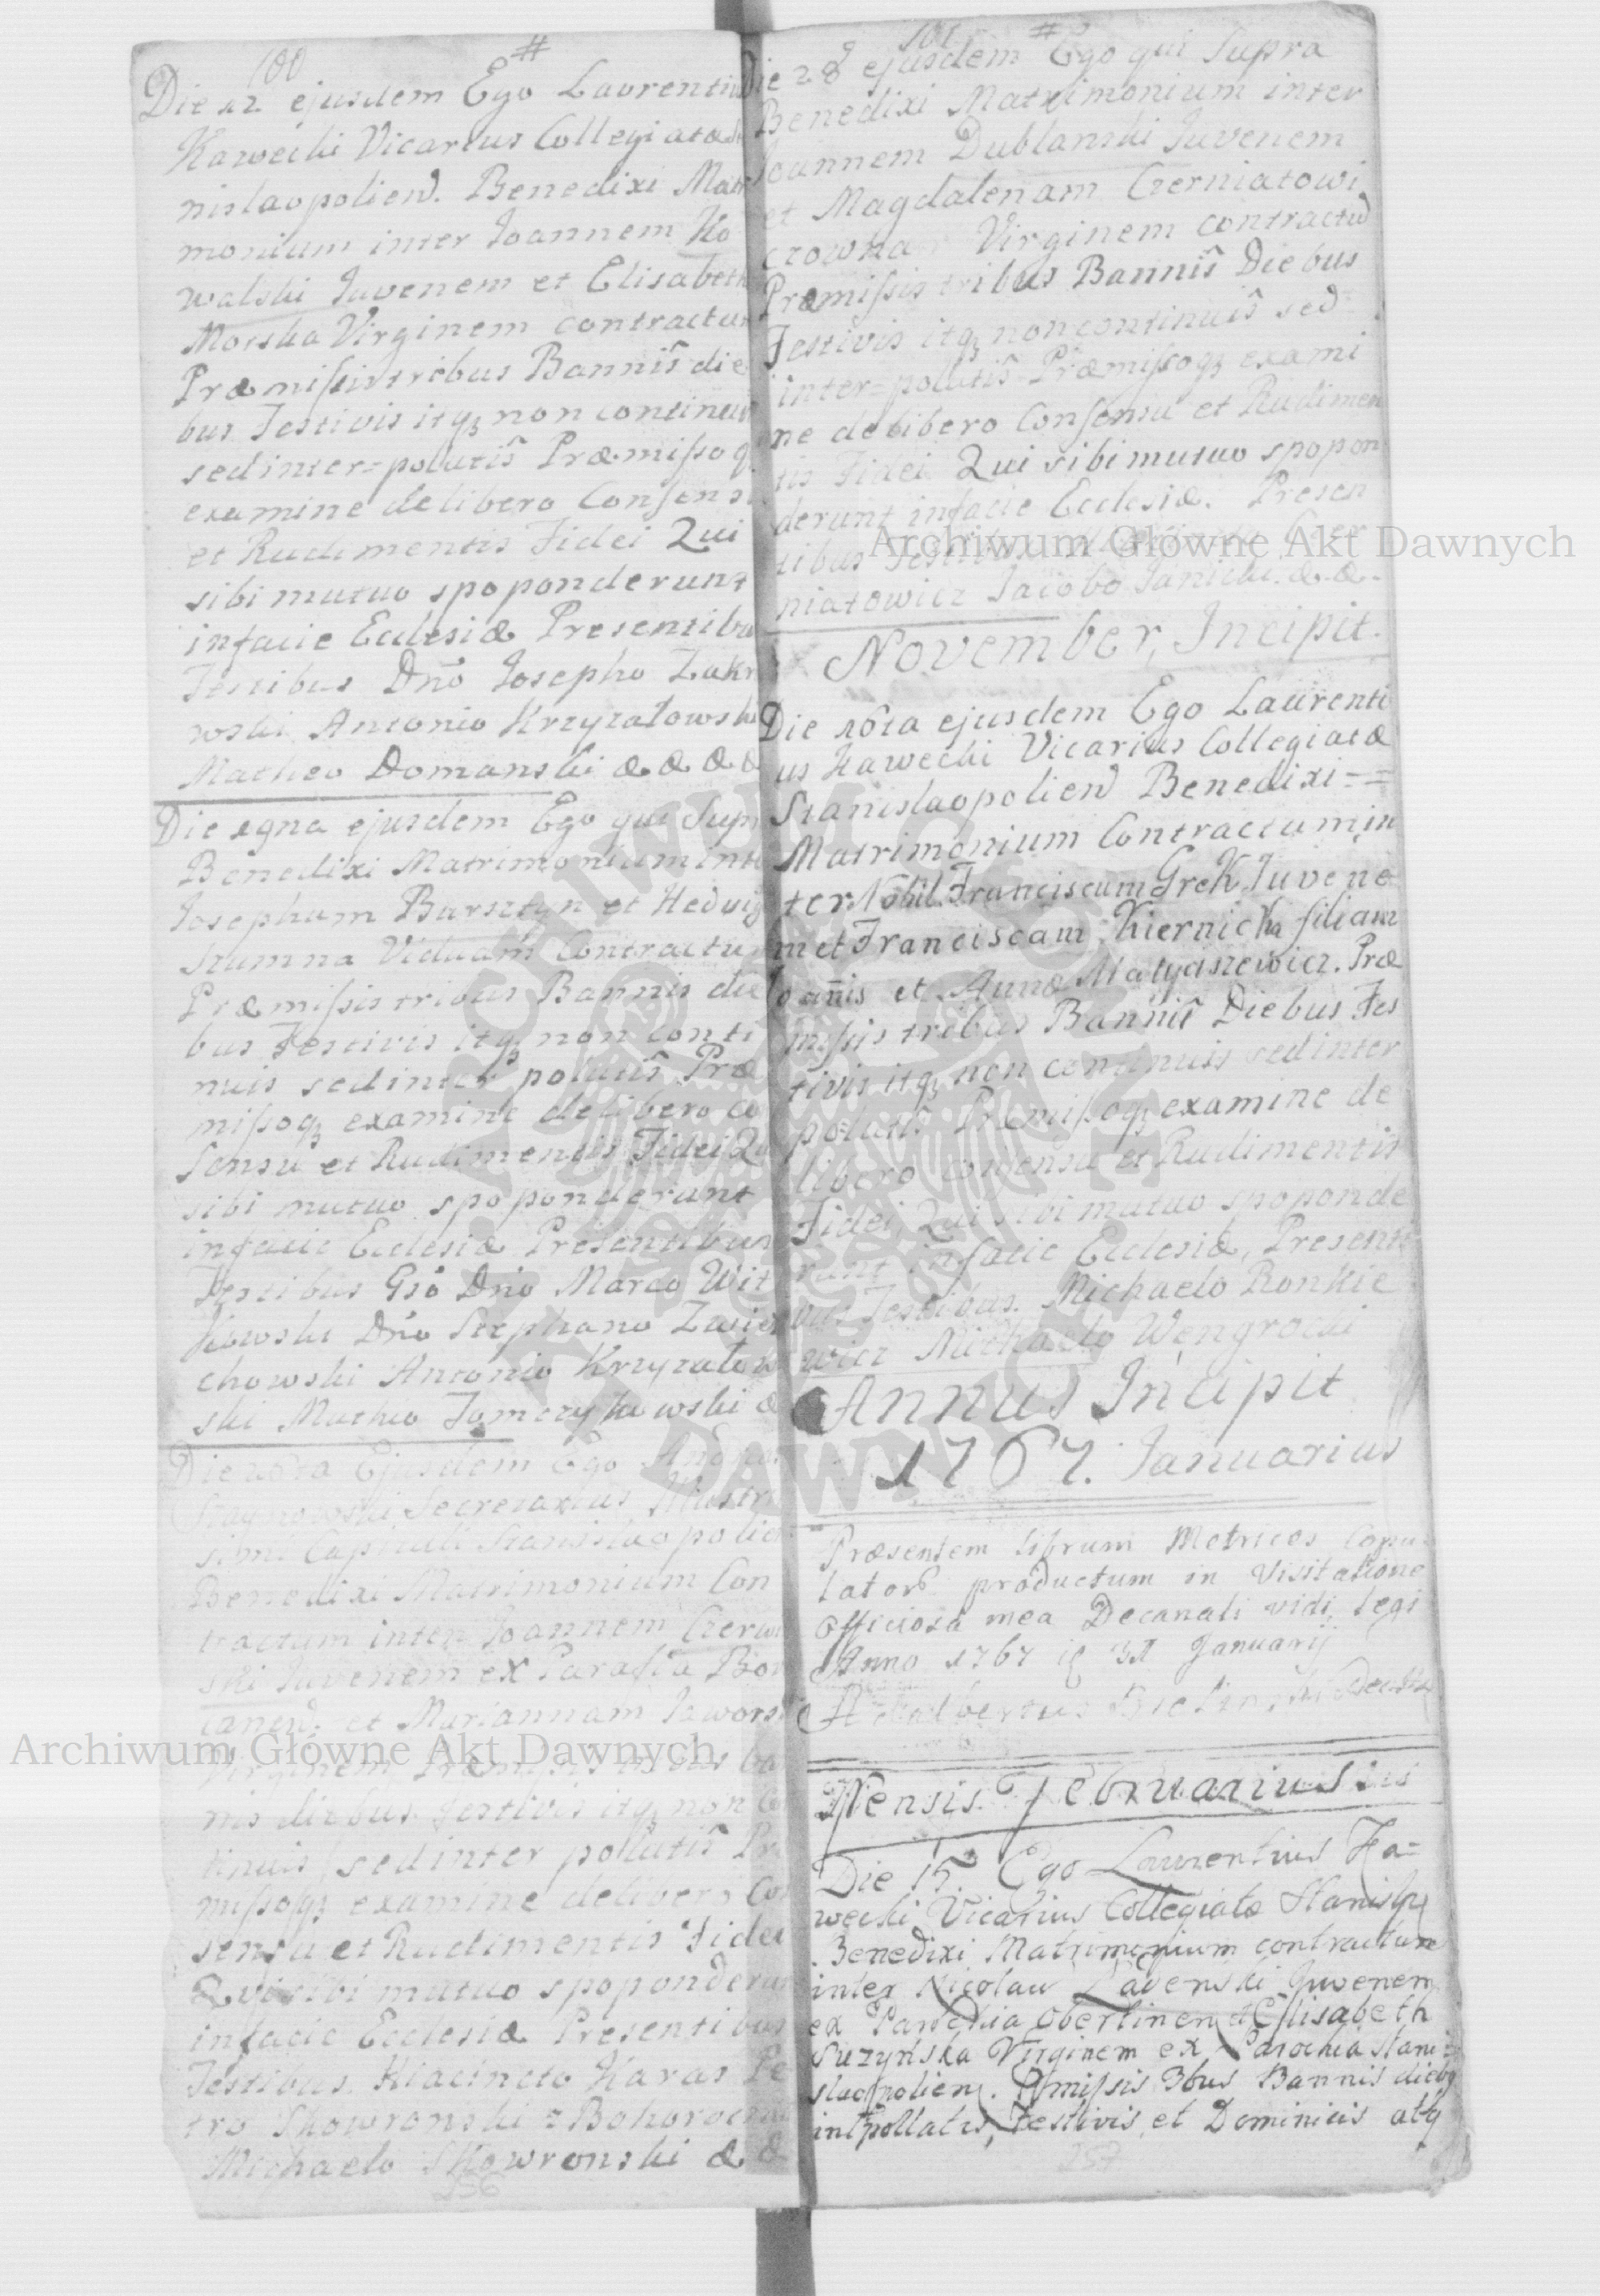 100 #
Die 12 ejusdem Ego Laurentiu
Hawecki Vicarius Collegiatæ
nislaopolien. Benedixi Matr
monium inter Joannem Ko
walski Juvenem et Elisabeth
Morska Virginem contractum
Præmissis tribus Bannis die
bus Festivis itq; non continu
sed inter=polatis Præmisso q
examine de libero Consens
et Rudimentis Fidei Qui
sibi mutuo spoponderunt
in facie Ecclesiæ Presentibu
Testibus Dno Josepho Zakr
wski Antonio Krzyzatowski
Matheo Domanski & & & &
Die 19na ejusdem Ego qui Supr
Benedixi Matrimonium inte
Josephum Bursztyn et Hedwig
Szumna Viduam Contractu
Præmissis tribus Bannis die
bus Festivis itq; non conti
nuis sed inter polatis Præ
missoq; examine de libero Co
sensu et Rudimentis Fidei Qu
sibi mutuo spoponderunt
in facie Ecclesiæ Presentibus
Testibus Gso Dno Marco Wit
kowski Dno Stephano Zwier
chowski Antonio Krzyzatow
ski Matheo Tomczykowski &
Ejusdem Ego
Secretarius Illustri
simi Capituli Stanislaopolien
Benedixi Matrimonium Con
tractum inter Joannem Czerw
ski Juvenem ex Parafia
et Mariannam Jawors
Virginem Præmissis tribus ba
nis diebus festivis itq; non Co
tinuis sed inter pollutis Pr
missoq; examine de libero Co
sensu et Rudimentis Fidei
Qui sibi mutuo spoponderun
in facie Ecclesiæ Presentibus
Testibus Hiacincto Haras Pe
tro Skowronski z
Michaelo Skowronski & &
256
101 #
Die 28 ejusdem Ego qui Supra
Benedixi Matrimonium inter
Joannem Dublanski Juvenem
et Magdalenam Czerniatowi
czowna Virginem contractu
Præmissis tribus Bannis Diebus
Festivis itq; non continuis sed
inter=polutis Præmissoq; exami
ne de libero Consensu et Rudimen
tis Fidei Qui sibi mutuo spopon
derunt in facie Ecclesiæ. Presen
tibus Testibus Czer
niatowicz Jacobo Janicki & &.
November, Incipit.
Die 16ta ejusdem Ego Laurenti
us Hawecki Vicarius Collegiatæ
Stanislaopolien Benedixi==
Matrimonium Contractum in
ter Nobil. Franciscum Grek Juvene
m et Franciscam Kiernicka filiam
Joannis et Annæ Matyaszewicz. Præ
missis tribus Bannis Diebus Fes
tivis itq; non continuis sed inter
polutis Præmissoq; examine de
libero consensu et Rudimentis
Fidei Qui sibi mutuo spoponde
runt in facie Ecclesiæ, Presenti
bus Testibus. Michaelo Ronkie
wicz Michaelo Wengrocki
Annus Incipit
1767. Januarius
Præsentem librum Metrices Copu
lator. productum in Visitatione
Officiosa mea Decanali vidi, legi
Anno 1767 31 Januarij
Adalbertus
Mensis Februarius
Die 15. Ego Laurentius Ha=
wecki Vicarius Collegiatæ Stanisl
Benedixi Matrimonium contractum
inter Nicolau Juvenem
ex Parochia Obertinen et Elisabeth
Suzyńska Virginem ex Parochia Stani
slaopolien. Pmissis 3bus Bannis dieb
intpollatis, Festivis et Dominicis atq
257
Archiwum Główne Akt Dawnych
Archiwum Główne Akt Dawnych
ARCHIWUM GŁÓWNE
AKT DAWNYCH